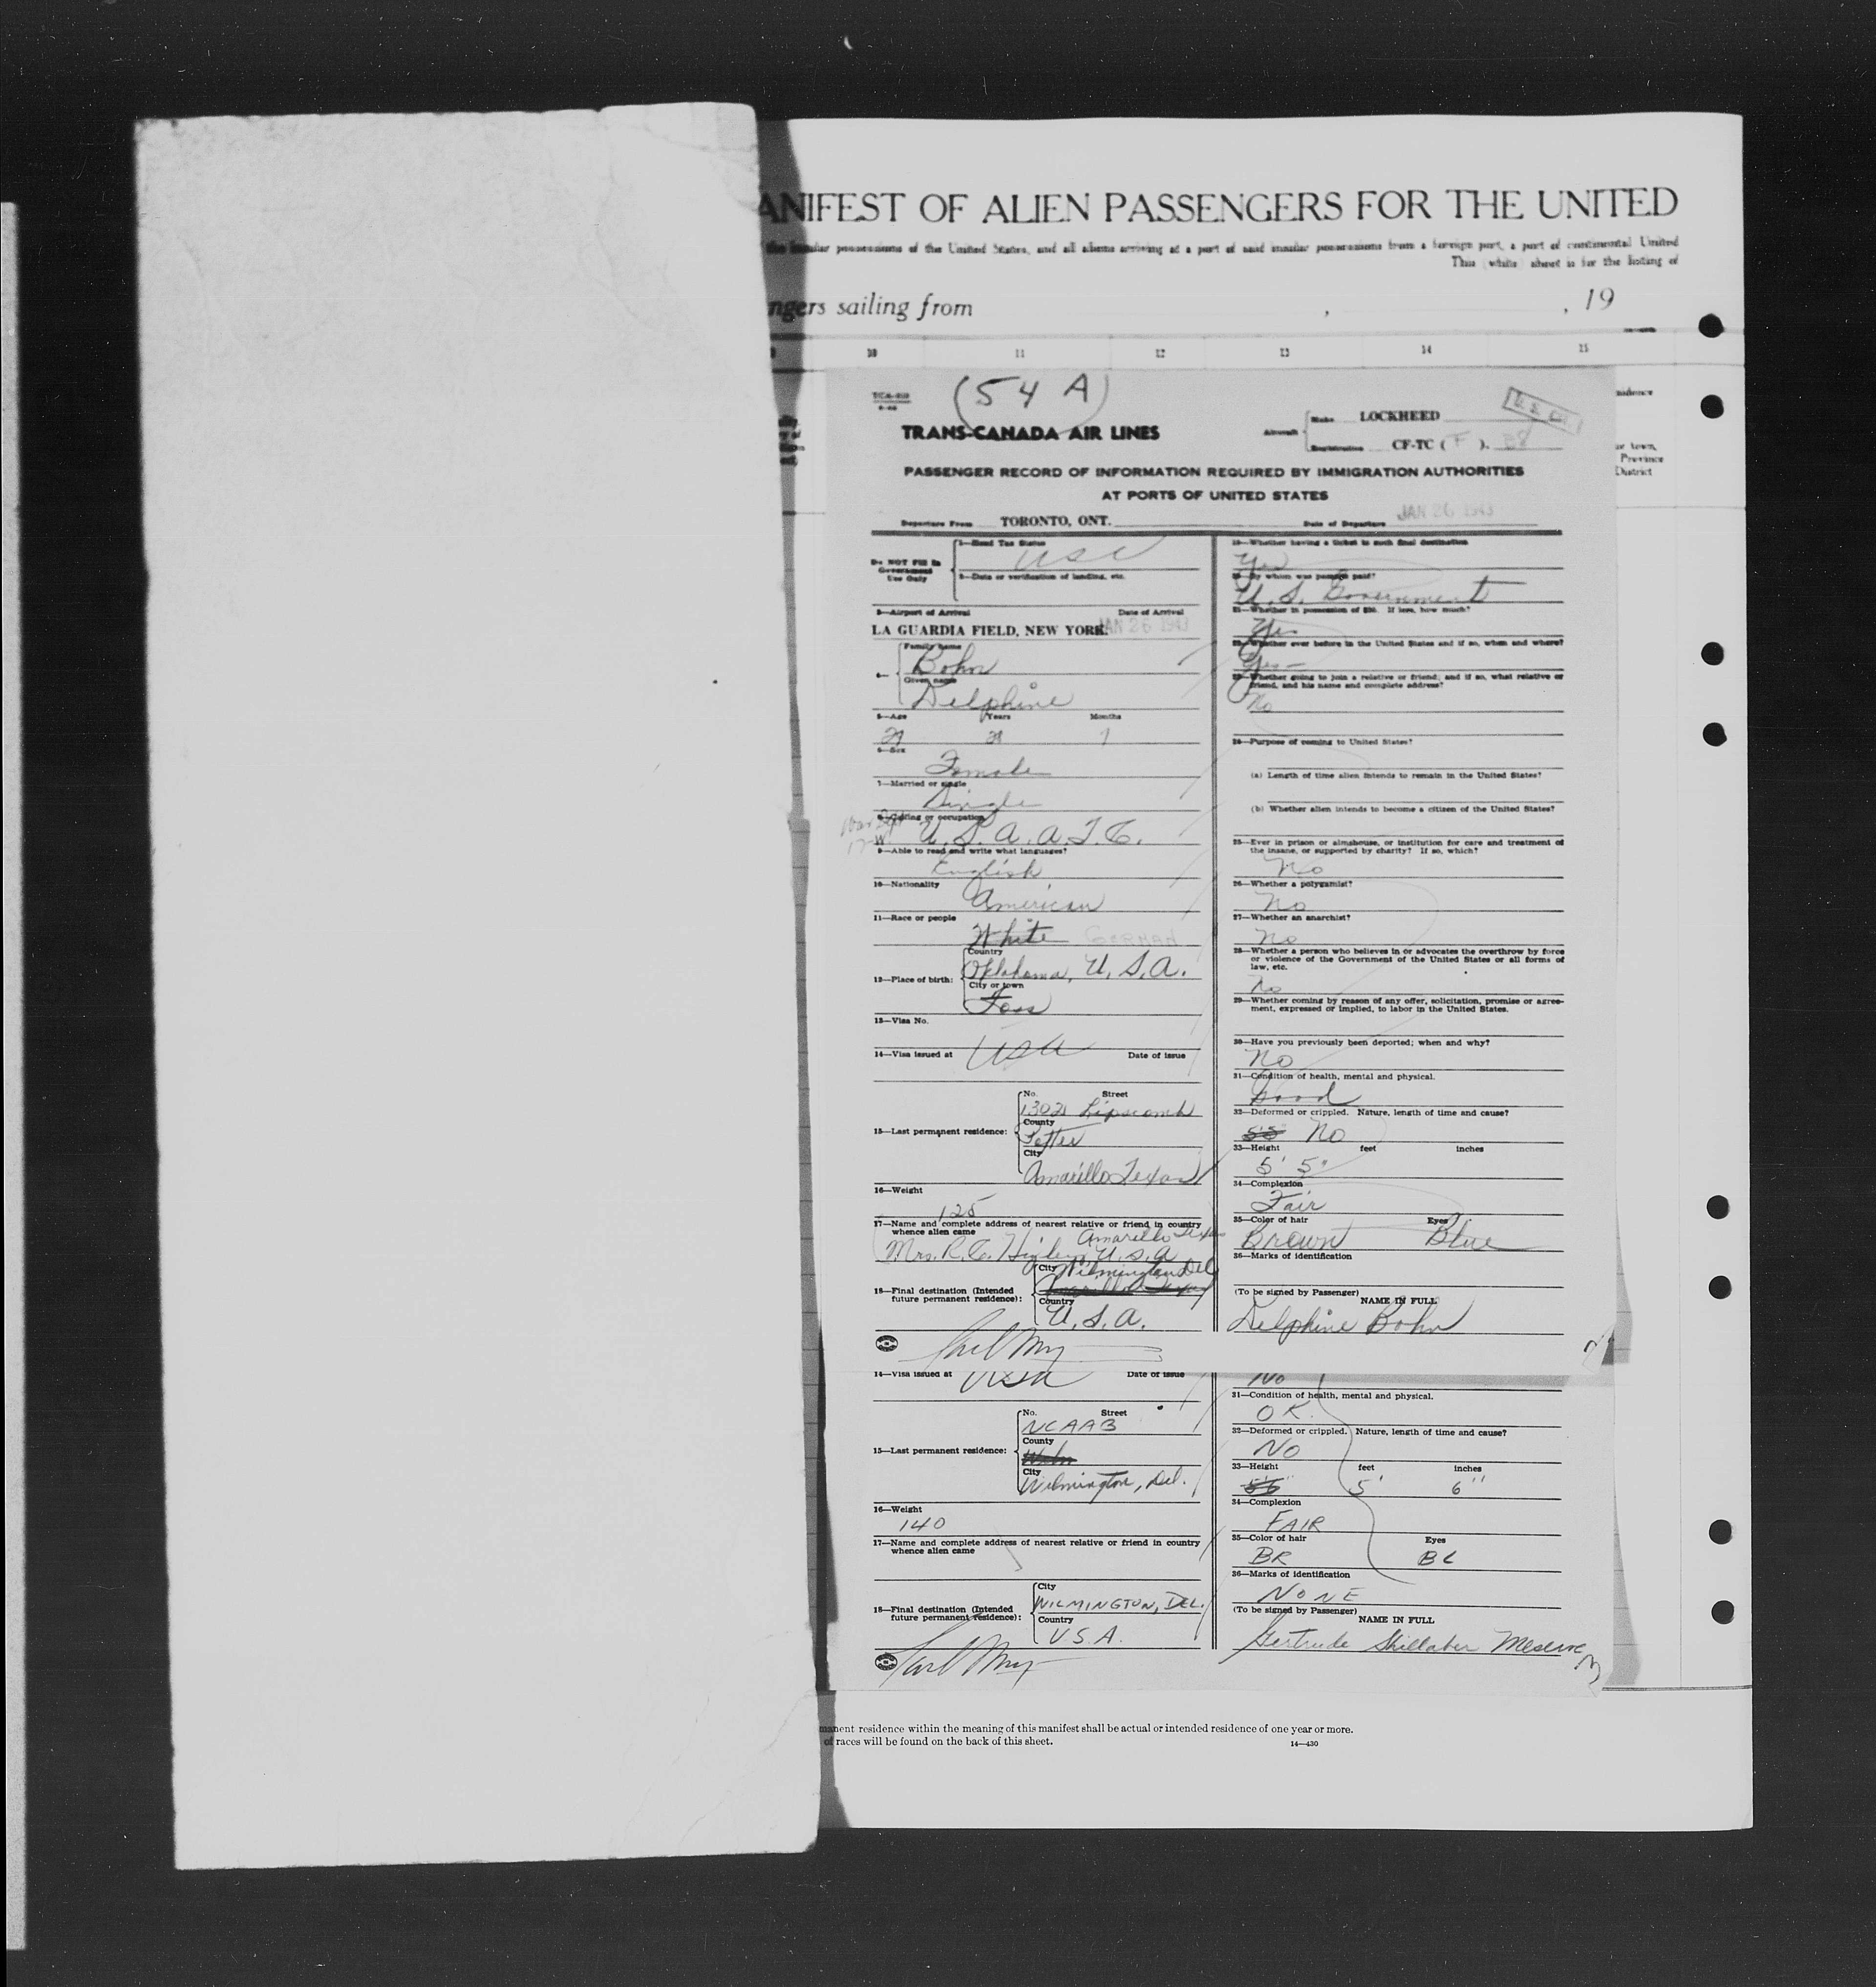 ANIFEST OF ALIEN PASSENGERS FOR THE UNITED
the insular possessions of the United States, and all aliens arriving at a port of said insular possessions from a foreign port, a port of continental United
This (white) sheet is for the listing of
ngers sailing from , , 19
10 11 12 13 14 15
(54 A)
TRANS-CANADA AIR LINES
Aircraft
Make LOCKHEED
Registration CF-TC ( F ).
PASSENGER RECORD OF INFORMATION REQUIRED BY IMMIGRATION AUTHORITIES
AT PORTS OF UNITED STATES
Departure From TORONTO, ONT.
Date of Departure JAN 26 1943
Do NOT Fill In
Government
Use Only
1—Head Tax Status
USC
2—Date or verification of landing, etc.
3—Airport of Arrival Date of Arrival
LA GUARDIA FIELD, NEW YORK. JAN 26 1943
4—
Family name
Bohn
Given name
Delphine
5—Age Years Months
29 29 7
6—Sex
Female
7—Married or single
Single
8—Calling or occupation
W. U. S. A. A. T. C.
9—Able to read and write what languages?
English
10—Nationality
American
11—Race or people
White GERMAN
12—Place of birth:
Country
Oklahoma, U. S. A.
City or town
Foss
13—Visa No.
14—Visa issued at Date of issue
USA
15—Last permanent residence:
No. Street
1302 Lipscomb
County
Potter
City
Amarillo Texas
16—Weight
125
17—Name and complete address of nearest relative or friend in country
whence alien came
Amarillo Texas
Mrs. R. C. Higley, U.S.A
18—Final destination (Intended
future permanent residence):
City
Wilmington Del
Amarillo Texas
Country
U. S. A.
19—Whether having a ticket to such final destination
Yes
20—By whom was passage paid?
U. S. Government
21—Whether in possession of $50. If less, how much?
Yes
22—Whether ever before in the United States and if so, when and where?
Yes—
23—Whether going to join a relative or friend; and if so, what relative or
friend, and his name and complete address?
No
24—Purpose of coming to United States?
(a) Length of time alien intends to remain in the United States?
(b) Whether alien intends to become a citizen of the United States?
25—Ever in prison or almshouse, or institution for care and treatment of
the insane, or supported by charity? If so, which?
No
26—Whether a polygamist?
No
27—Whether an anarchist?
No
28—Whether a person who believes in or advocates the overthrow by force
or violence of the Government of the United States or all forms of
law, etc.
No
29—Whether coming by reason of any offer, solicitation, promise or agree-
ment, expressed or implied, to labor in the United States.
30—Have you previously been deported; when and why?
No
31—Condition of health, mental and physical.
Good
32—Deformed or crippled. Nature, length of time and cause?
5'5" No
33—Height feet inches
5' 5"
34—Complexion
Fair
35—Color of hair Eyes
Brown Blue
36—Marks of identification
(To be signed by Passenger)
NAME IN FULL
Delphine Bohn
14—Visa issued at Date of issue
USA
15—Last permanent residence:
No. Street
NCAAB
County
City
Wilmington, Del.
16—Weight
140
17—Name and complete address of nearest relative or friend in country
whence alien came
18—Final destination (Intended
future permanent residence):
City
WILMINGTON, DEL.
Country
U.S.A.
No
31—Condition of health, mental and physical.
OK.
32—Deformed or crippled. Nature, length of time and cause?
NO
33—Height feet inches
5'6" 5' 6"
34—Complexion
FAIR
35—Color of hair Eyes
BR BL
36—Marks of identification
NONE
(To be signed by Passenger)
NAME IN FULL
Gertrude Shillaber Meserve
manent residence within the meaning of this manifest shall be actual or intended residence of one year or more.
of races will be found on the back of this sheet.
14—430